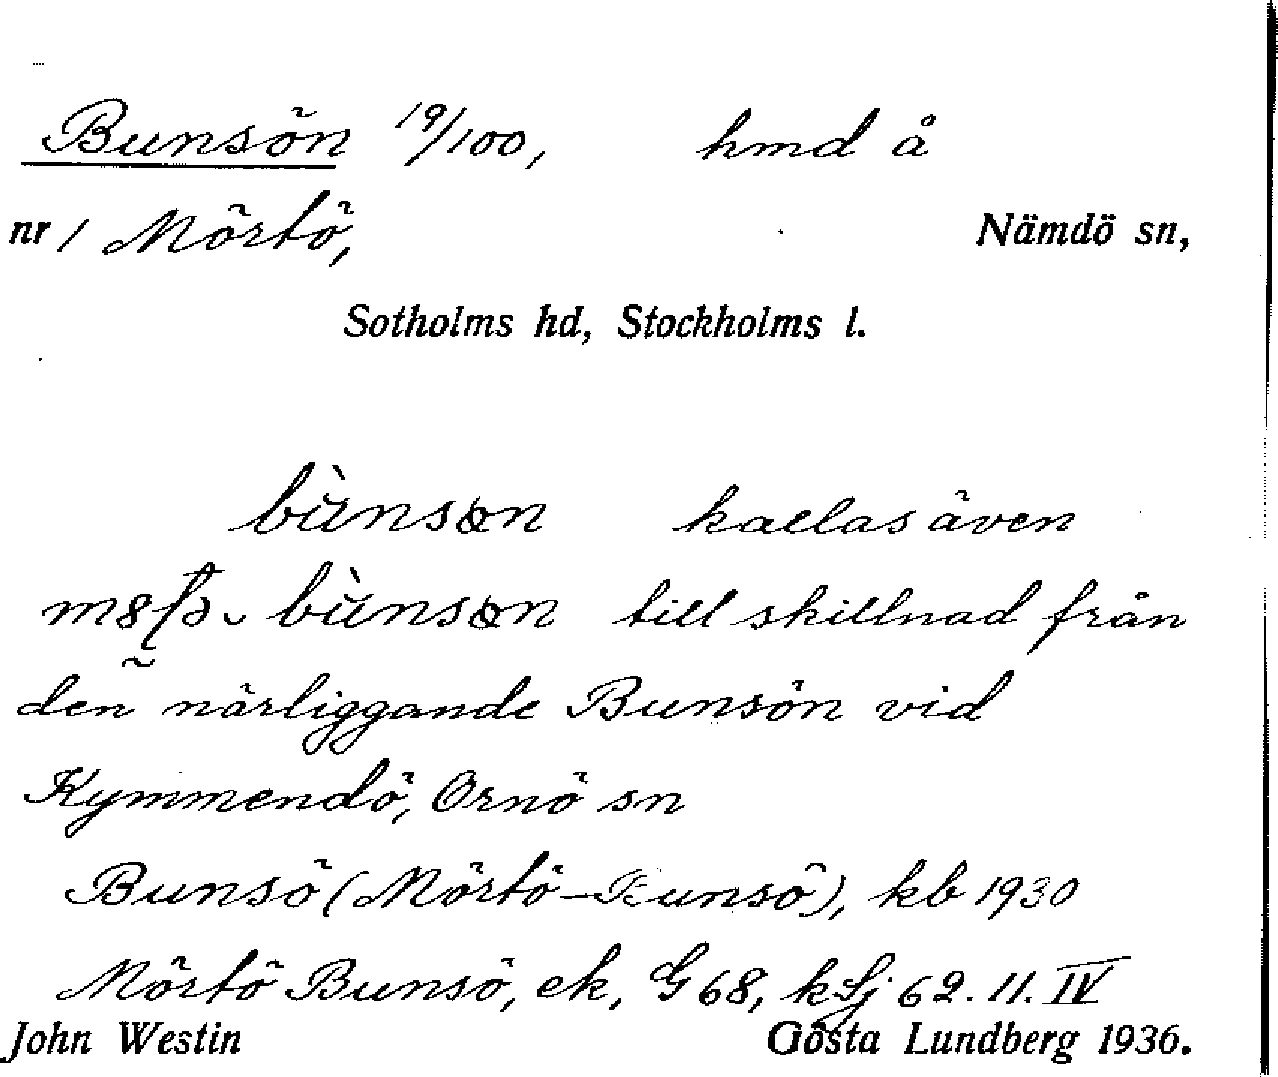 Bunsön 19/100, hmd å
nr 1 Mörtö, Nämdö sn,
Sotholms hd, Stockholms l.
bùnsøn kallas även
bùnsøn till skillnad från
den närliggande Bunsön vid
Kymmendö, Ornö sn
Bunsö (Mörtö-Bunsö), kb 1930
Mörtö Bunsö, ek, G 68, ksj 62. 11. IV
John Westin Gösta Lundberg 1936.